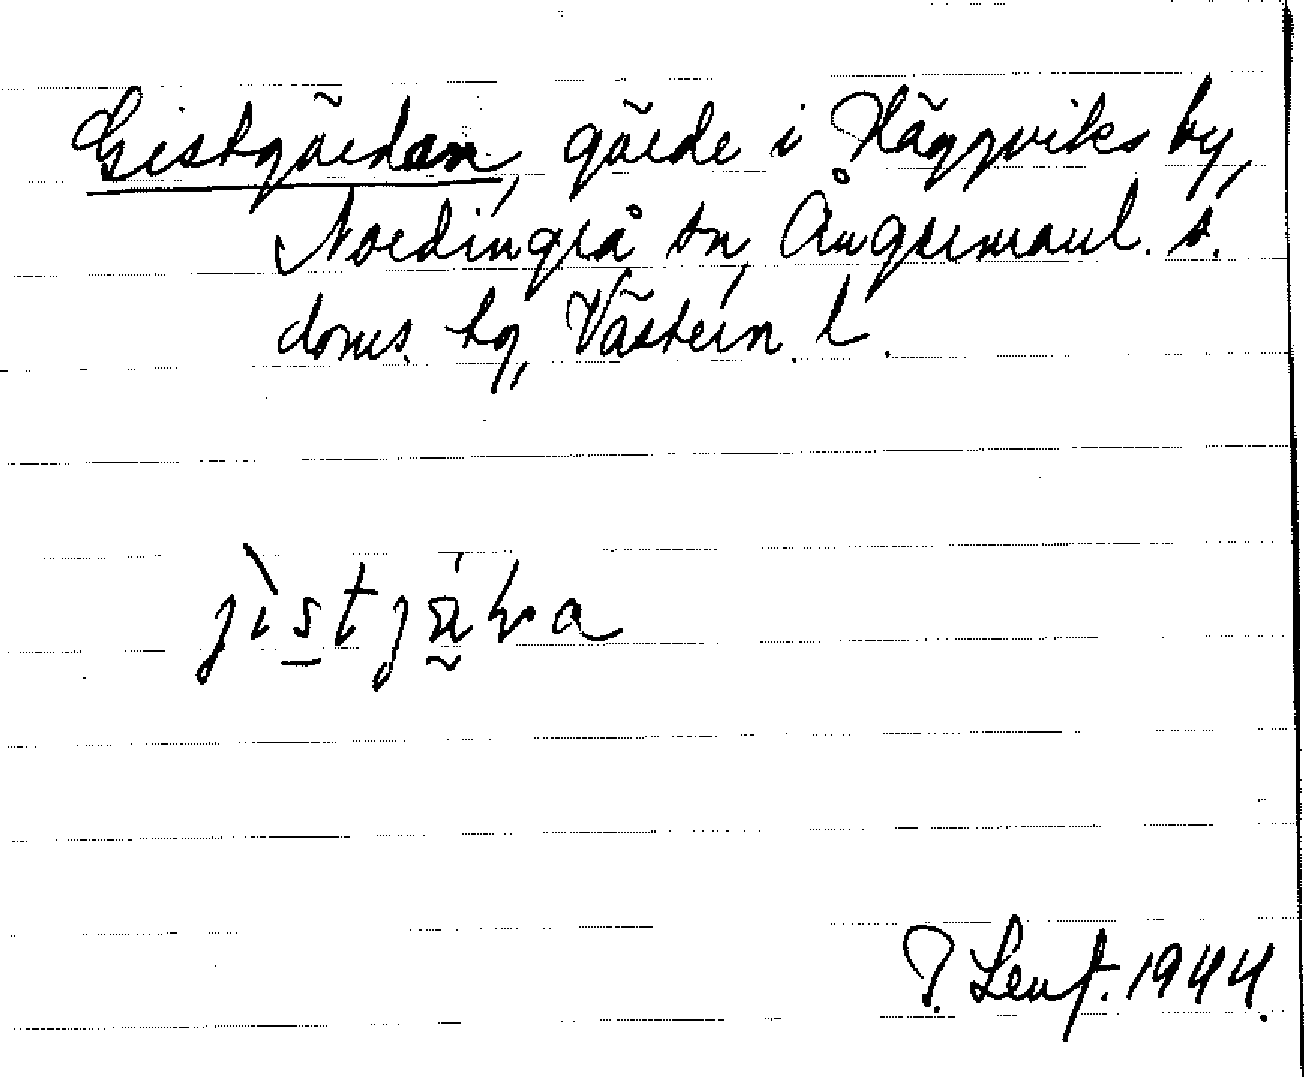 Gistgärdan, gärde i Häggviks by,
Nordingrå sn, Ångermanl. s.
doms. tg, Västern. l.
P. Lenf. 1944.